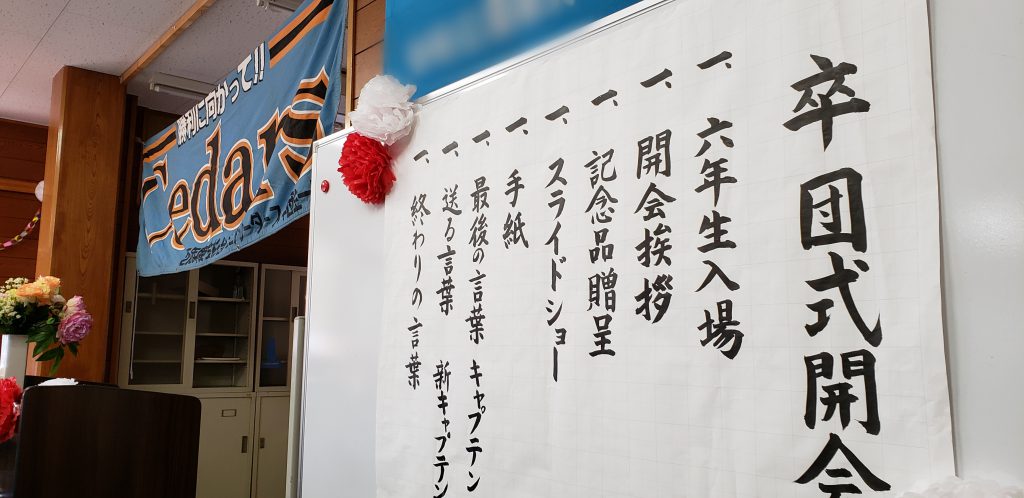 卒団式開会
一、六年生入場
一、開会挨拶
一、記念品贈呈
一、スライドショー
一、手紙
一、最後の言葉 キャプテン
一、送る言葉 新キャプテン
一、終わりの言葉
勝利に向かって!!
Cedars